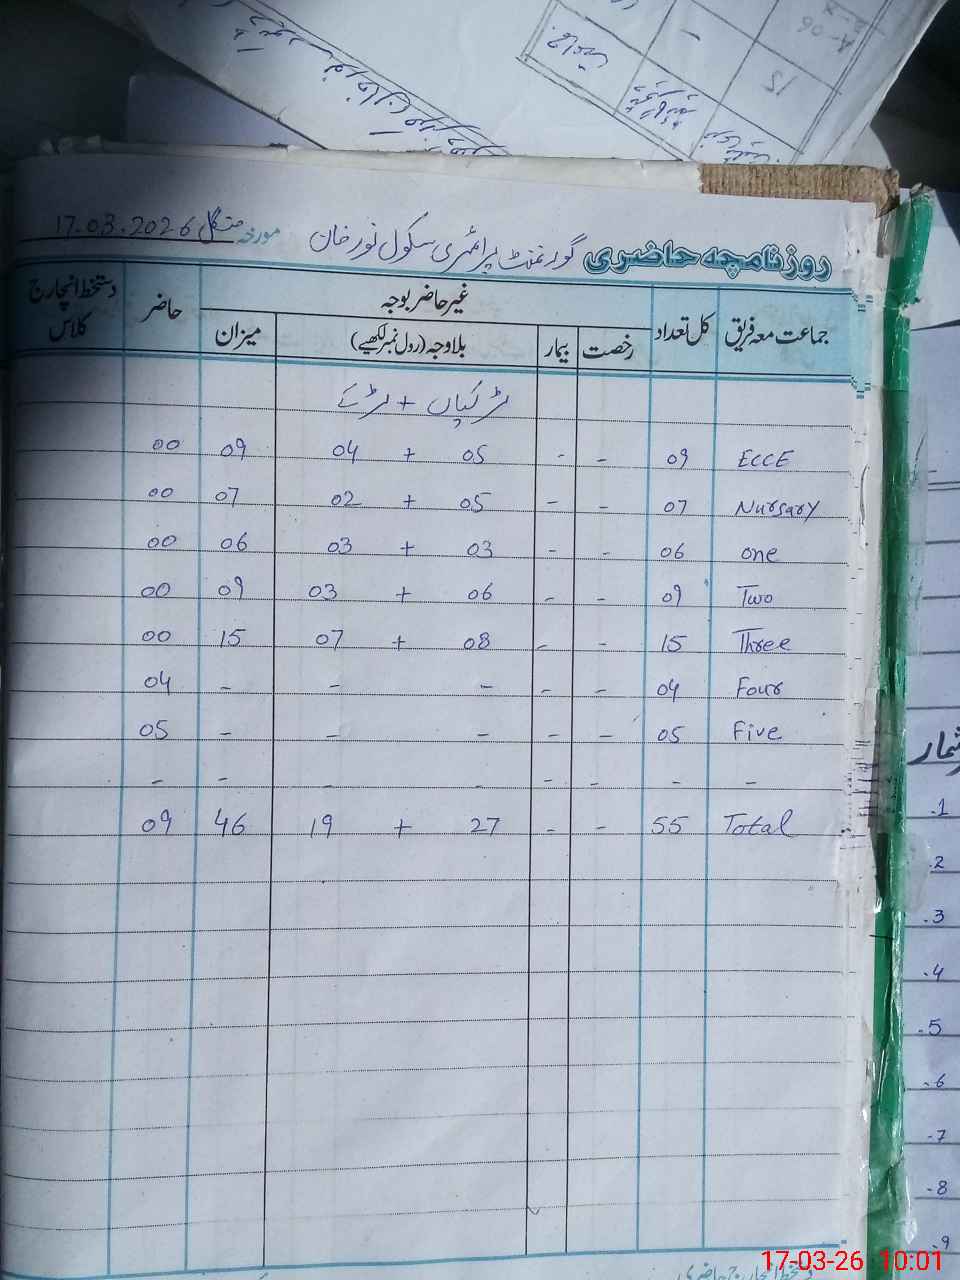 روزنامچہ حاضری گورنمنٹ پرائمری سکول نورخان مورخہ منگل 17.03.2026
جماعت معہ فریق کل تعداد غیر حاضر بوجہ حاضر دستخط انچارج کلاس
رخصت بیمار بلاوجہ (رول نمبر لکھیے) میزان
لڑکے + لڑکیاں
ECCE 09 - - 05 + 04 09 00
Nursary 07 - - 05 + 02 07 00
one 06 - - 03 + 03 06 00
Two 09 - - 06 + 03 09 00
Three 15 - - 08 + 07 15 00
Four 04 - - - - - 04
Five 05 - - - - - 05
- - - - - - - -
Total 55 - - 27 + 19 46 09
شمار
.1
.2
.3
.4
.5
.6
.7
.8
.9
17-03-26 10:01